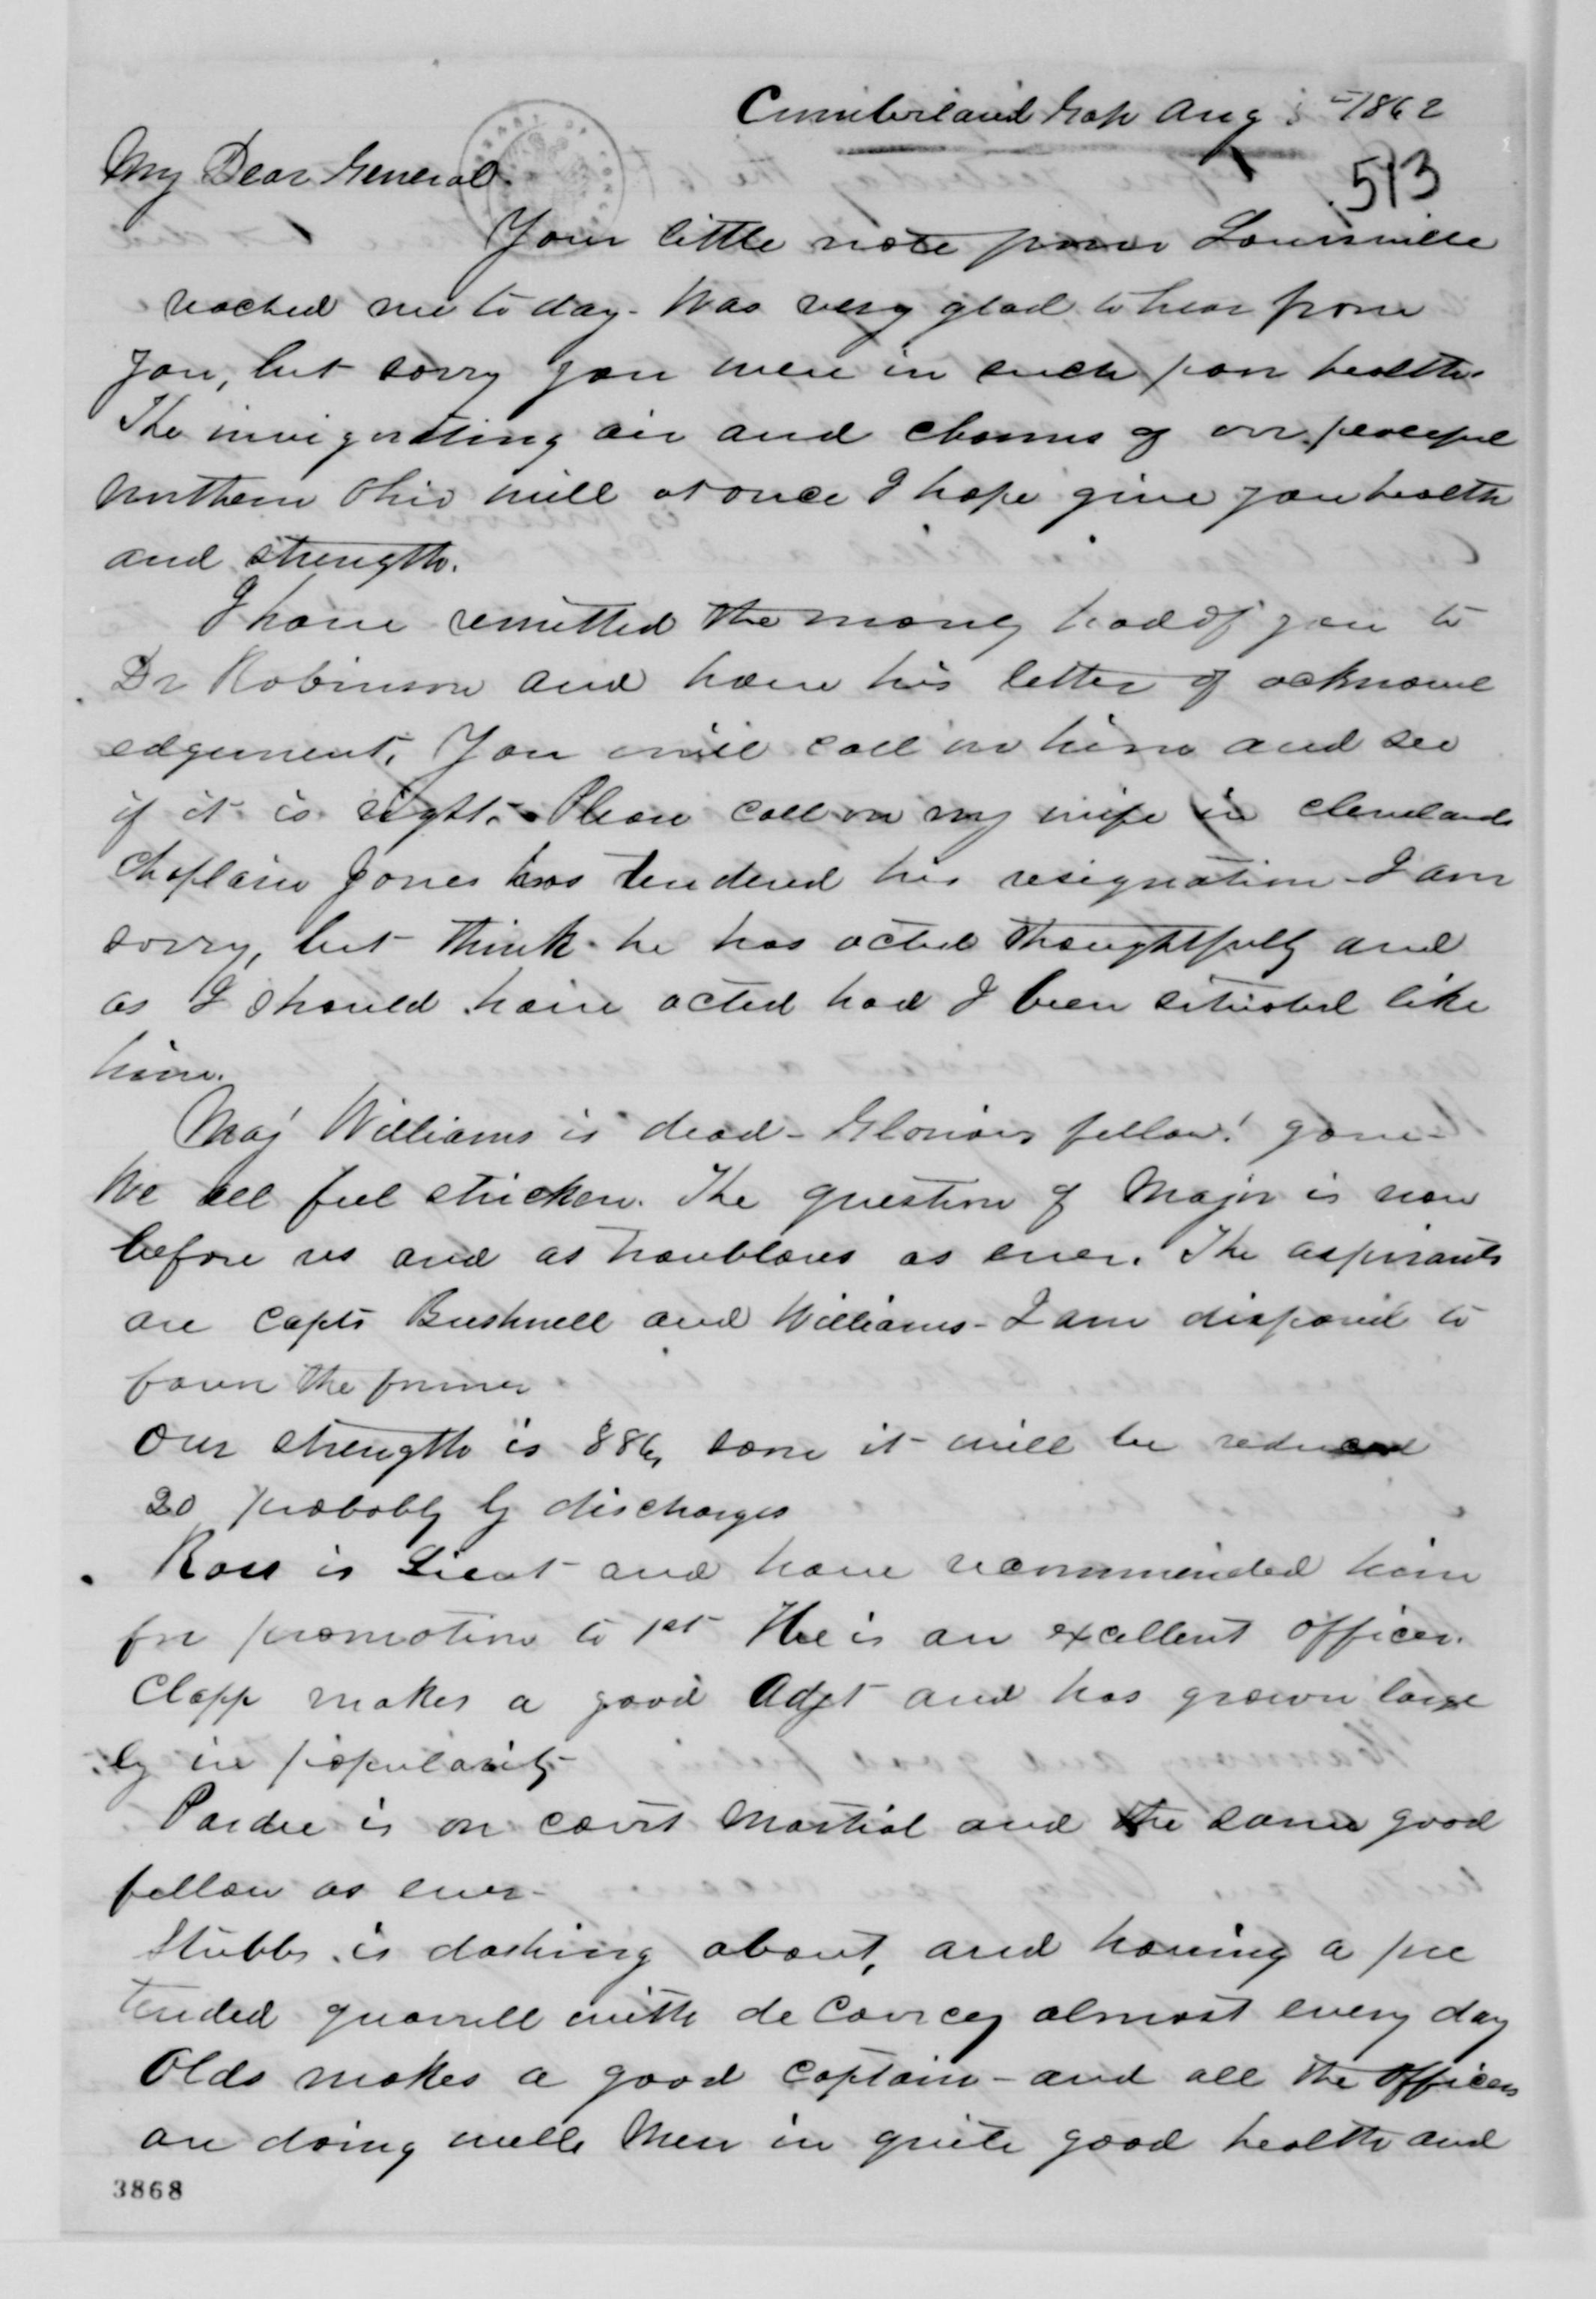 Cumberland Gap Aug 1862
513
My Dear General.
Your little note from Louisville
reached me to day - Was very glad to hear from
you, but sorry you were in such poor health.
The invigorating air and charms of our peaceful
Northern Ohio will at once I hope give you health
and strength.
I have remitted the money had of you to
Dr Robinson and have his letter of acknowl
edgement. You will call on him and see
if it is right. - Please call on my wife in Cleveland
Chaplain Jones has tendered his resignation - I am
sorry, but think he has acted thoughtfully and
as I should have acted had I been situated like
him.
Maj Williams is dead - Glorious fellow! gone -
We all feel stricken. The question of Major is now
before us and as troublous as ever. The aspirants
are Capts Bushnell and Williams - I am disposed to
favor the former
Our strength is 886, soon it will be reduced
20 probably by discharges
Ross is Lieut and have recommended him
for promotion to 1st He is an excellent officer.
Clapp makes a good Adjt and has grown large
ly in popularity -
Pardee is on court Martial and the same good
fellow as ever -
Stubbs is dashing about, and having a pre
tended quarrell with de Courcey almost every day
Olds makes a good Captain - and all the officers
are doing well. Men in quite good health and
3868